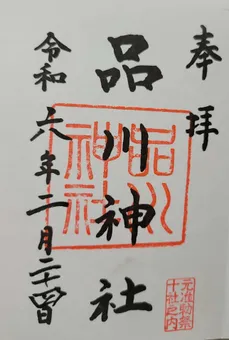 奉拝
品川神社
品川神社
令和六年二月二十四日
元准勅祭
十社之内